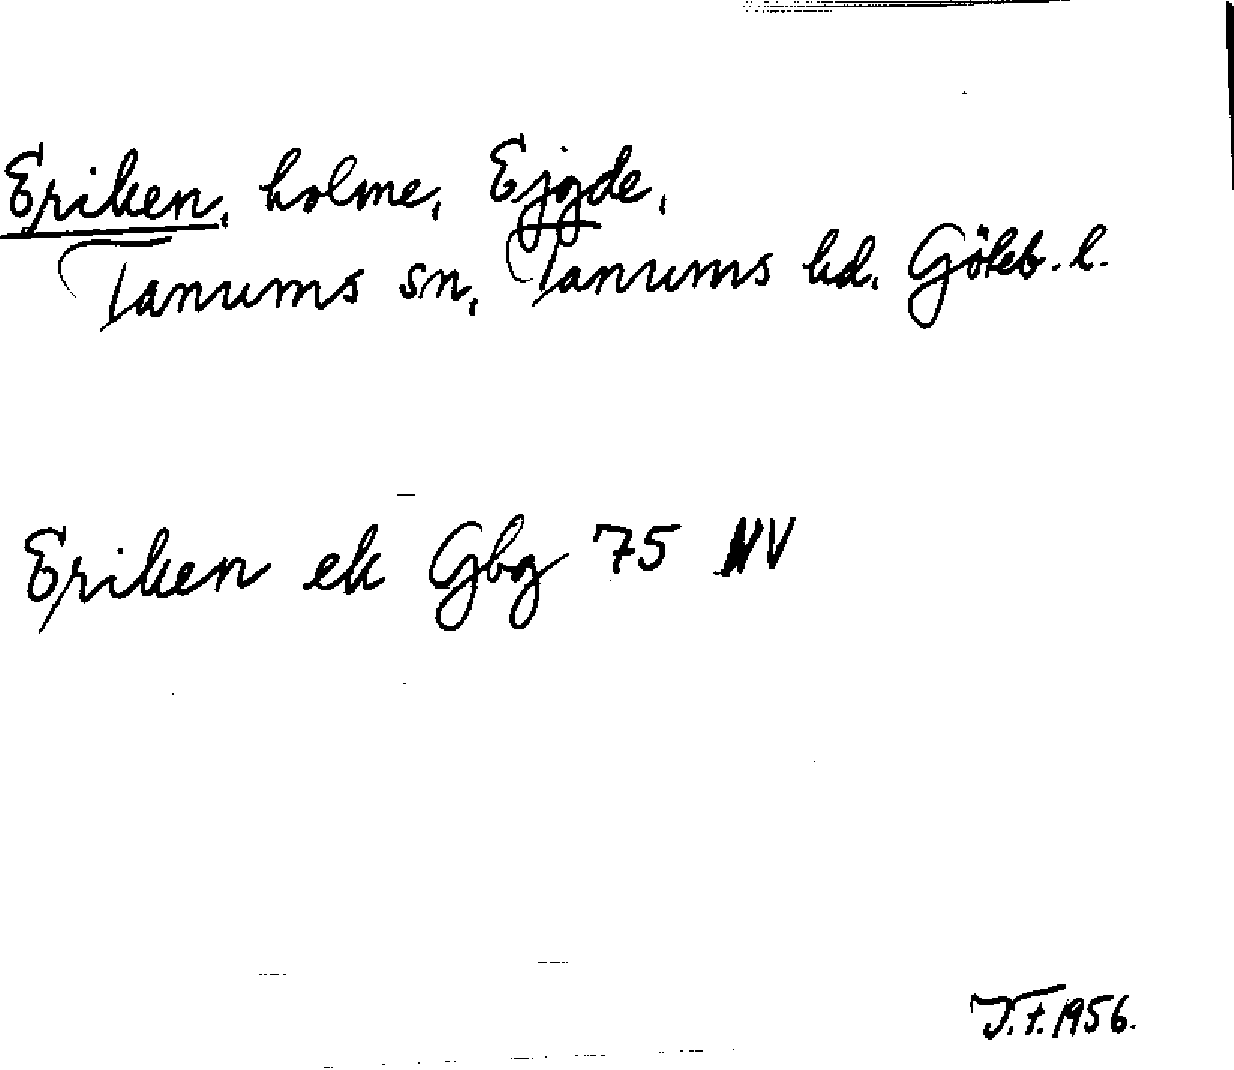 Eriken, holme, Ejgde,
Tanums sn, Tanums hd. Göteb. l.
Eriken ek Gbg 75 NV
J.F. 1956.